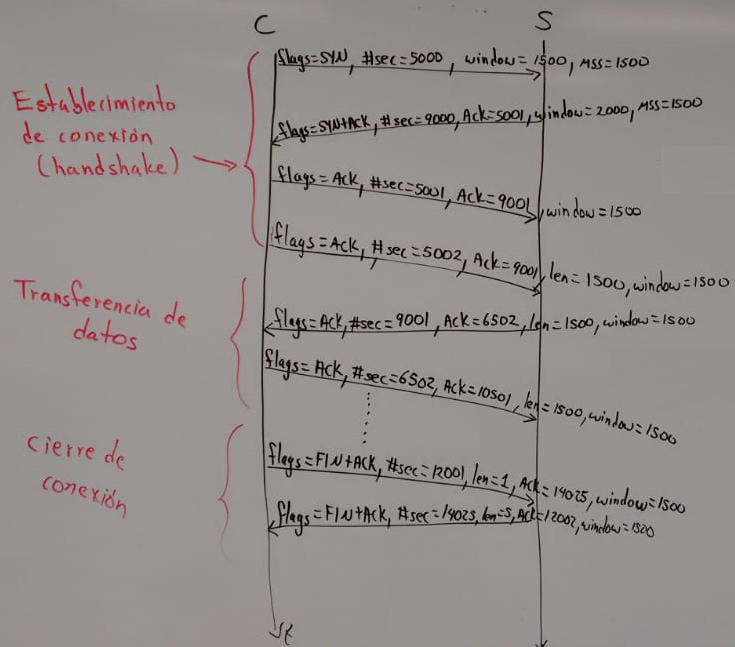 C
S
flags=SYN, #sec=5000, window=1500, MSS=1500
Establecimiento
de conexión
(handshake)
flags=SYN+ACK, #sec=9000, Ack=5001, window=2000, MSS=1500
flags=Ack, #sec=5001, Ack=9001, window=1500
flags=Ack, #sec=5002, Ack=9001, len=1500, window=1500
Transferencia de
datos
flags=Ack, #sec=9001, Ack=6502, len=1500, window=1500
flags=Ack, #sec=6502, Ack=10501, len=1500, window=1500
Cierre de
conexión
flags=FIN+Ack, #sec=12001, len=1, Ack=14025, window=1500
flags=FIN+Ack, #sec=14025, len=5, Ack=12002, window=1500